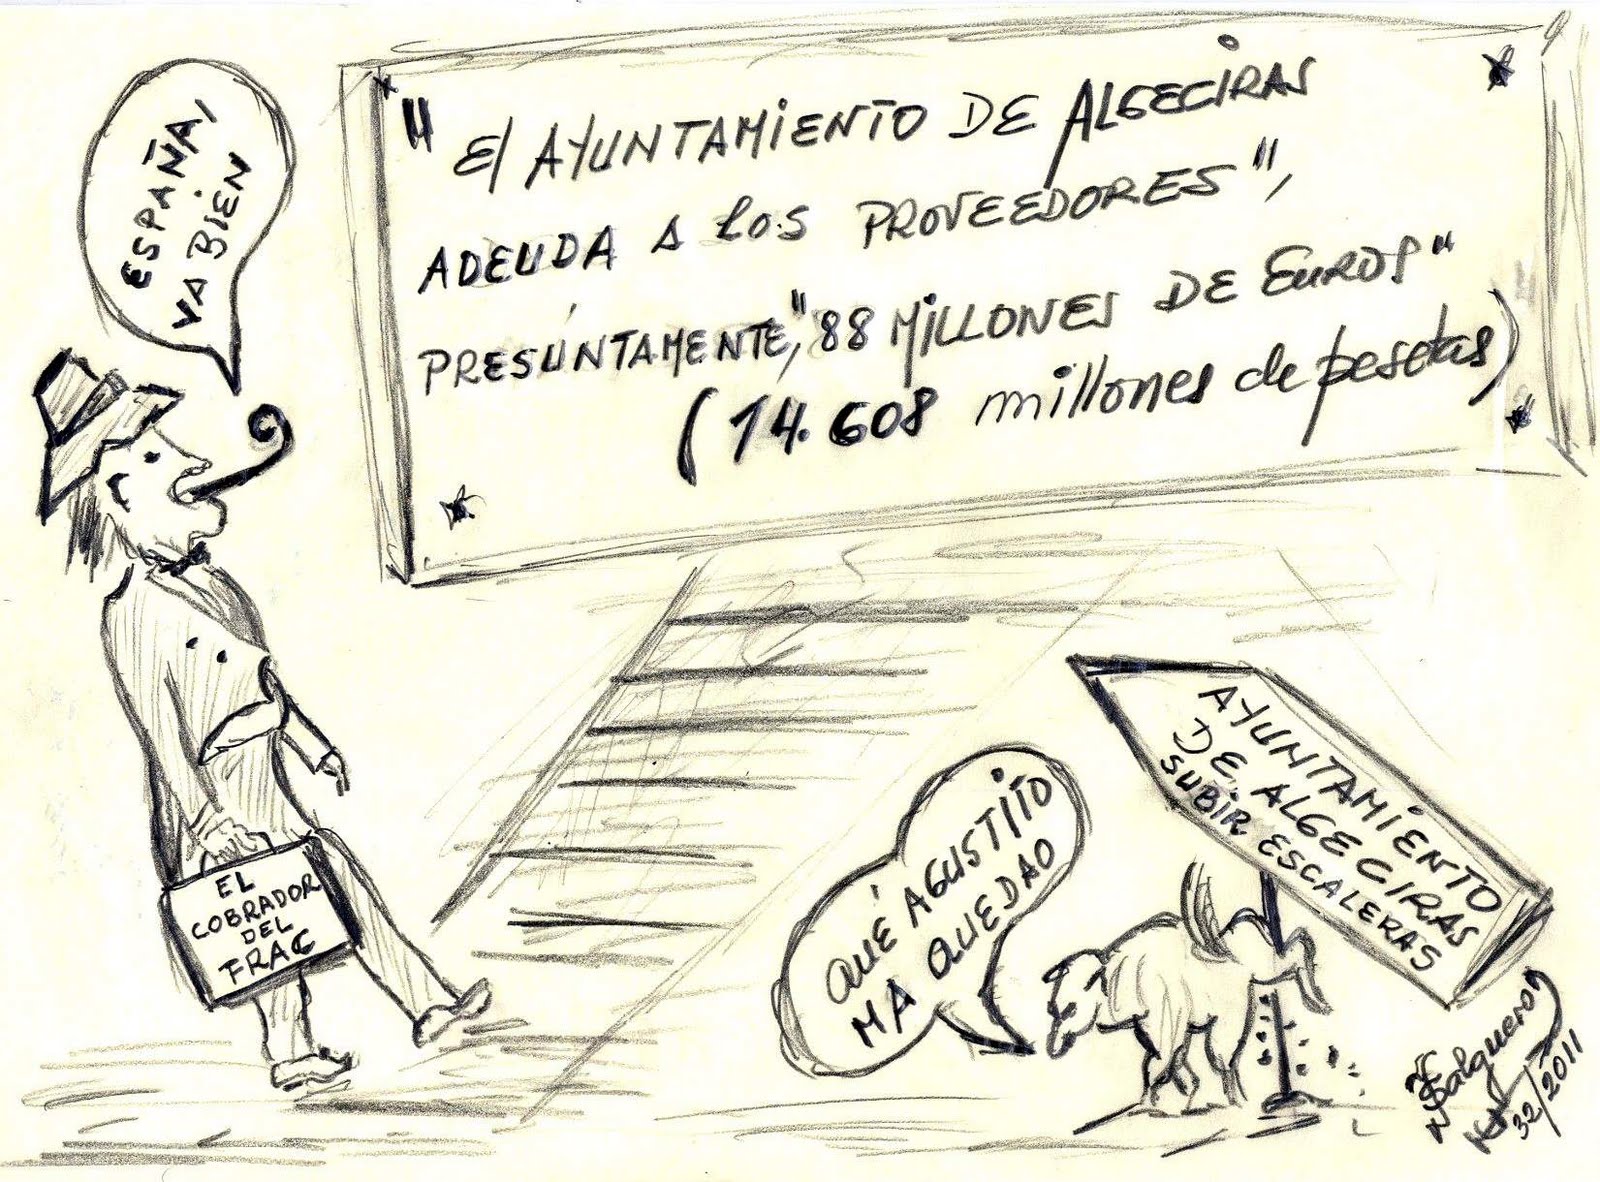 ESPAÑA,
VA BIÉN
" El AYUNTAMiENTO DE ALGECIRAS
ADEUDA A LOS PROVEEDORES",
PRESÚNTAMENTE, "88 MiLLONES DE EUROS"
(14.608 millones de pesetas)
EL
COBRADOR
DEL
FRAC
QUÉ AGUSTITO
MA QUEDAO
AYUNTAMIENTO
DE ALGECIRAS
SUBIR ESCALERAS
Salguero
32/2011